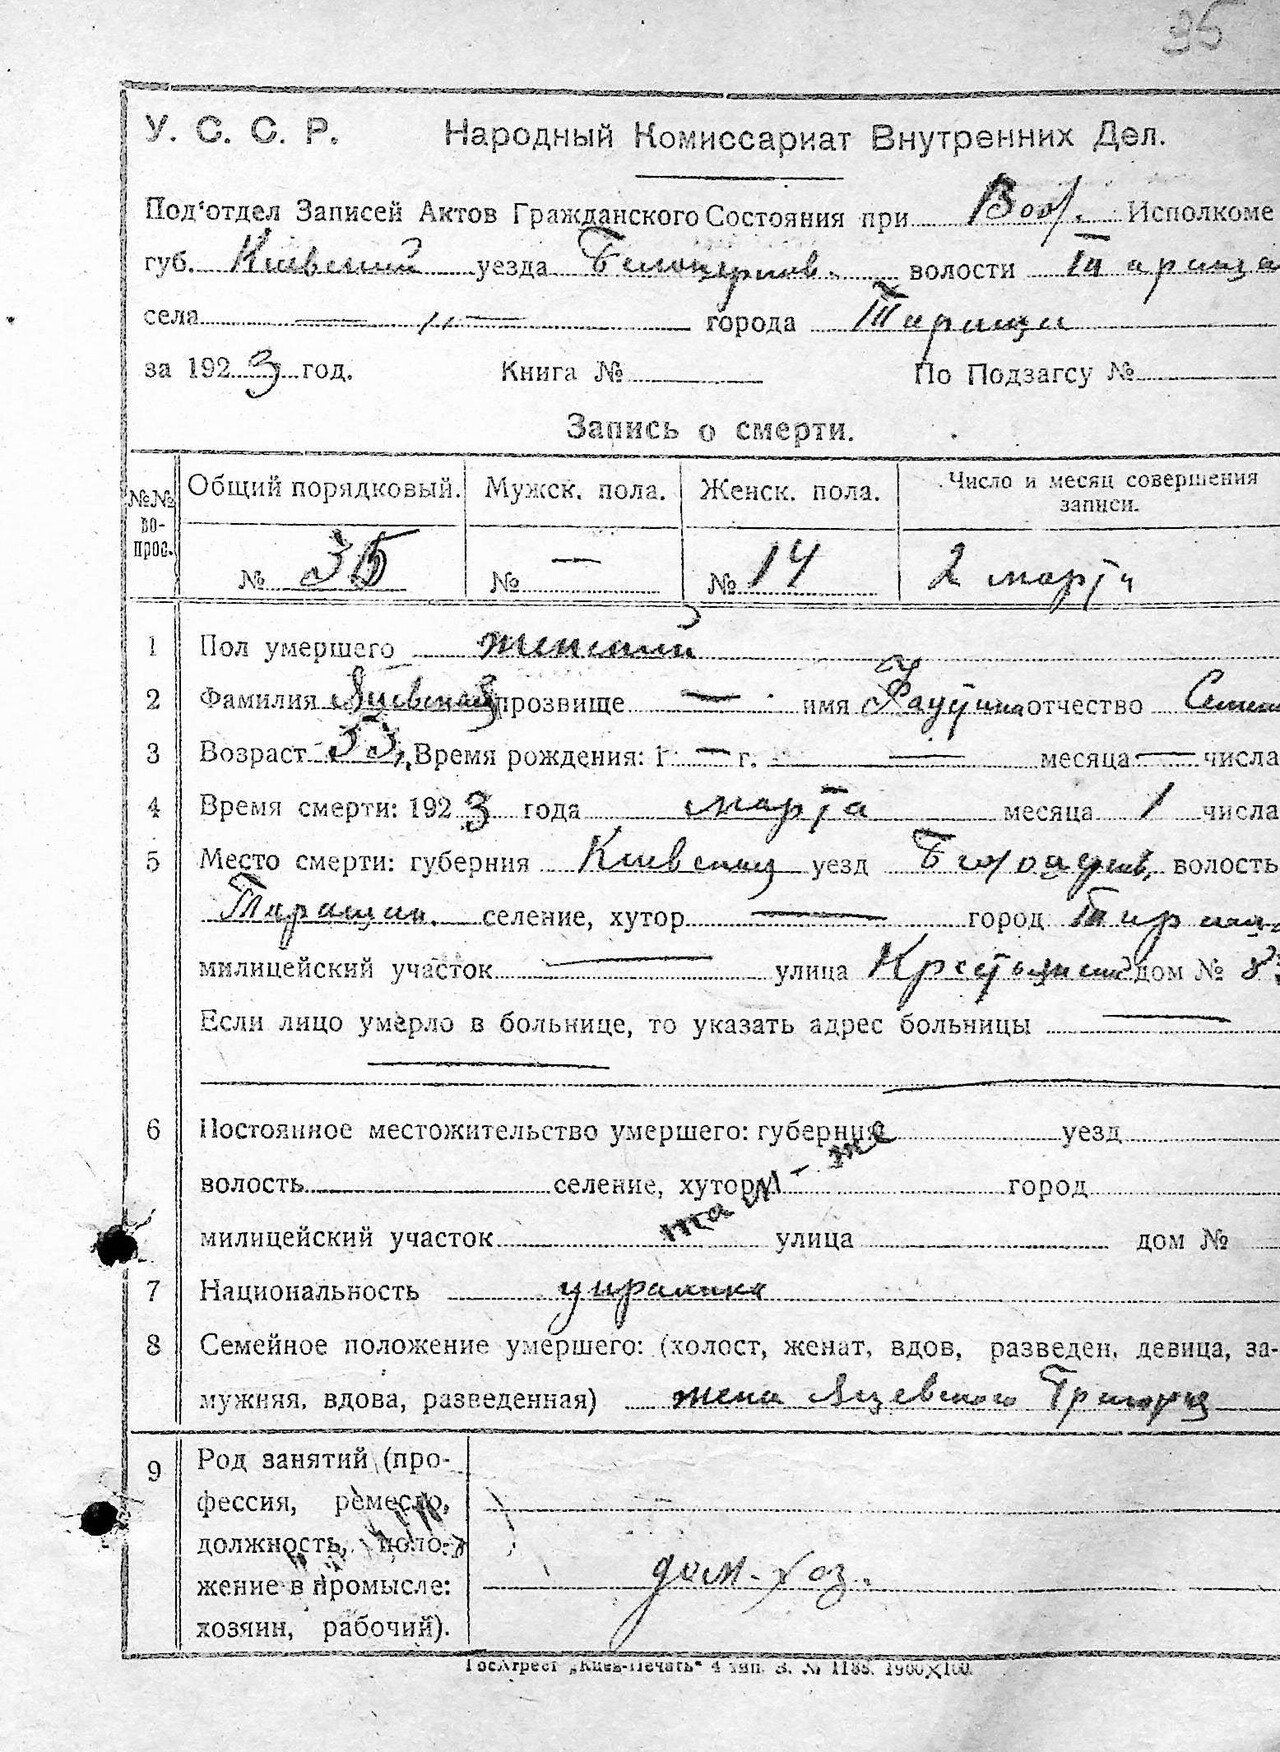 35
У. С. С. Р. Народный Комиссариат Внутренних Дел.
Под'отдел Записей Актов Гражданского Состояния при Вол. Исполкоме
губ. Киевский уезда Белоцерков. волости Тараща
села — „ — города Таращи
за 1923 год. Книга № По Подзагсу №
Запись о смерти.
№№ во-прос. Общий порядковый. Мужск. пола. Женск. пола. Число и месяц совершения записи.
№ 35 № — № 14 2 марта
1 Пол умершего женский
2 Фамилия прозвище — имя Фаустина отчество Семен
3 Возраст 53, Время рождения: 1 — г. — месяца — числа
4 Время смерти: 1923 года марта месяца 1 числа
5 Место смерти: губерния Киевская уезд Белоцерков, волость
Таращан. селение, хутор — город Таращ
милицейский участок — улица Крестьянская дом № 8
Если лицо умерло в больнице, то указать адрес больницы —
6 Постоянное местожительство умершего: губерния уезд
волость селение, хутор город
там-же
милицейский участок улица дом №
7 Национальность украинка
8 Семейное положение умершего: (холост, женат, вдов, разведен, девица, за-
мужняя, вдова, разведенная) жена Яцевского Григория
9 Род занятий (про-
фессия, ремесло,
должность, поло-
жение в промысле:
хозяин, рабочий).
дом. хоз.
ГосАтрест „Киев-Печать“ 4 тип. З. № 1188. 1900×100.